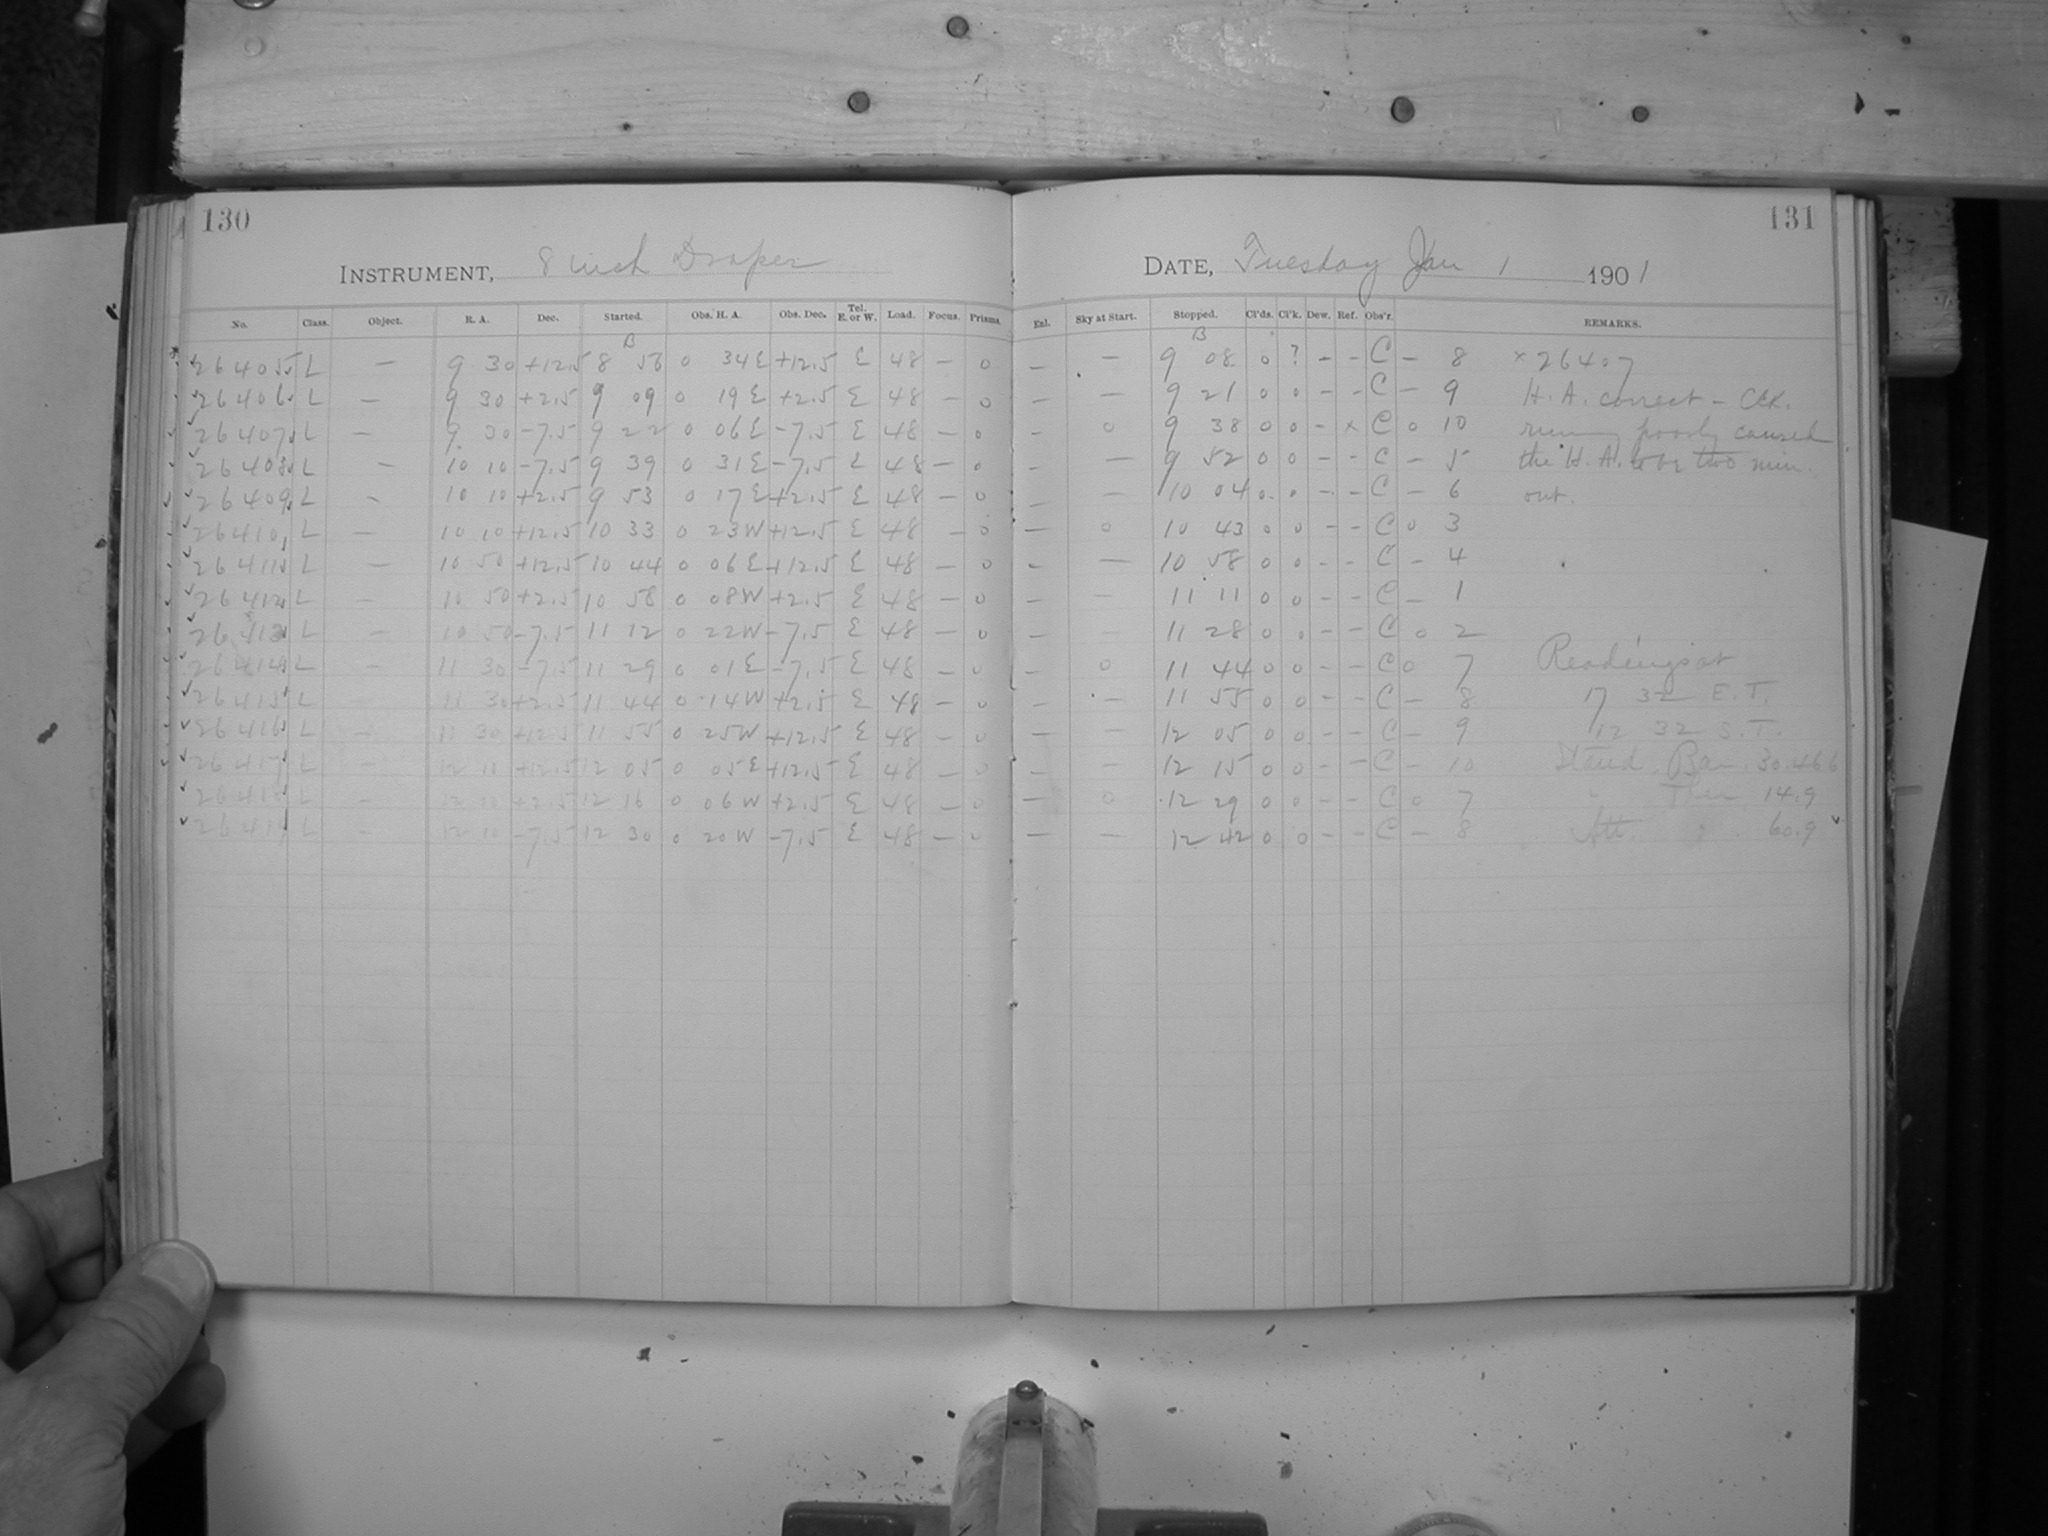 130
INSTRUMENT, 8 inch Draper
No. Class. Object. R. A. Dec. Started. Obs. H. A. Obs. Dec. Tel. E. or W. Load. Focus. Prisms.
B
26405 L — 9 30 +12.5 8 56 0 34 E +12.5 E 48 — 0
26406 L — 9 30 +2.5 9 09 0 19 E +2.5 E 48 — 0
26407 L — 9 30 -7.5 9 22 0 06 E -7.5 E 48 — 0
26408 L — 10 10 -7.5 9 39 0 31 E -7.5 E 48 — 0
26409 L — 10 10 +2.5 9 53 0 17 E +2.5 E 48 — 0
26410 L — 10 10 +12.5 10 33 0 23 W +12.5 E 48 — 0
26411 L — 10 50 +12.5 10 44 0 06 E +12.5 E 48 — 0
26412 L — 10 50 +2.5 10 58 0 08 W +2.5 E 48 — 0
26413 L — 10 50 -7.5 11 12 0 22 W -7.5 E 48 — 0
26414 L — 11 30 -7.5 11 29 0 01 E -7.5 E 48 — 0
26415 L — 11 30 +2.5 11 44 0 14 W +2.5 E 48 — 0
26416 L — 11 30 +12.5 11 55 0 25 W +12.5 E 48 — 0
26417 L — 12 10 +12.5 12 05 0 05 E +12.5 E 48 — 0
26418 L — 12 10 +2.5 12 16 0 06 W +2.5 E 48 — 0
26419 L — 12 10 -7.5 12 30 0 20 W -7.5 E 48 — 0
131
DATE, Tuesday Jan 1 1901
Enl. Sky at Start. Stopped. Cl'ds. Cl'k. Dew. Ref. Obs'r. REMARKS.
B
— — 9 08 0 ? - - C — 8 × 26407
— — 9 21 0 0 - - C — 9 H. A. correct - Clk.
— 0 9 38 0 0 - x C 0 10 running poorly caused
— — 9 52 0 0 - - C — 5 the H. A. to be two min.
— — 10 04 0 0 - - C — 6 out.
— 0 10 43 0 0 - - C 0 3
— — 10 58 0 0 - - C — 4
— — 11 11 0 0 - - C — 1
— — 11 28 0 0 - - C 0 2
— 0 11 44 0 0 - - C 0 7 Readings at
— — 11 55 0 0 - - C — 8 17 32 E.T.
— — 12 05 0 0 - - C — 9 12 32 S.T.
— — 12 15 0 0 - - C — 10 Stand. Bar. 30.466
— 0 12 29 0 0 - - C 0 7 " Ther 14.9
— — 12 42 0 0 - - C — 8 Att. " 60.9